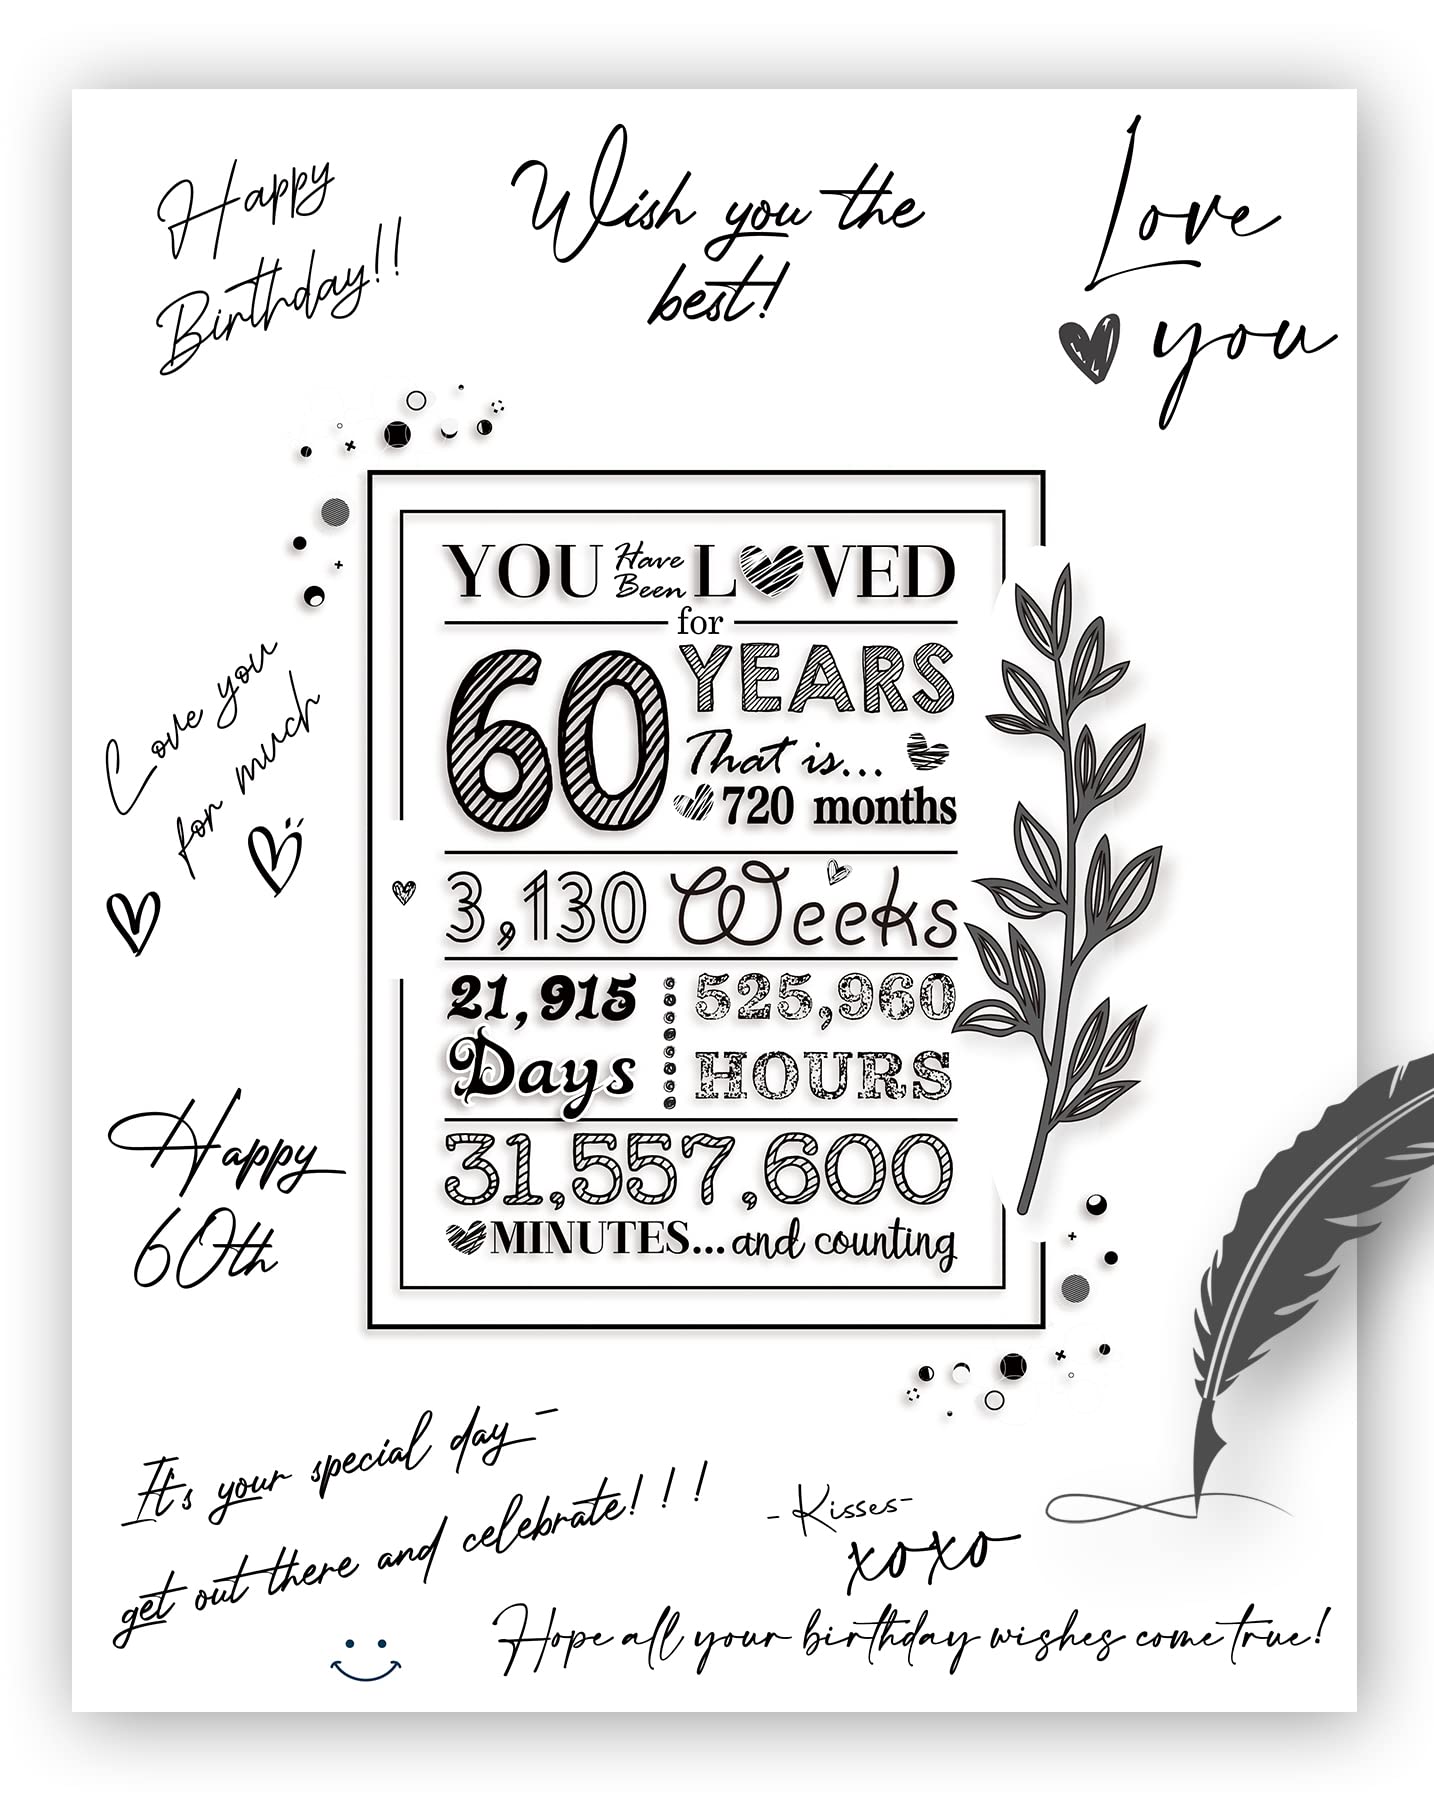 Happy
Birthday!!
Wish you the
best!
Love
you
YOU Have Been LOVED
for
60 YEARS
That is...
720 months
Love you
for much
3,130 Weeks
21,915 Days
525,960 HOURS
31,557,600
MINUTES...and counting
Happy
60th
It's your special day -
get out there and celebrate!!!
- Kisses-
xoxo
Hope all your birthday wishes come true!